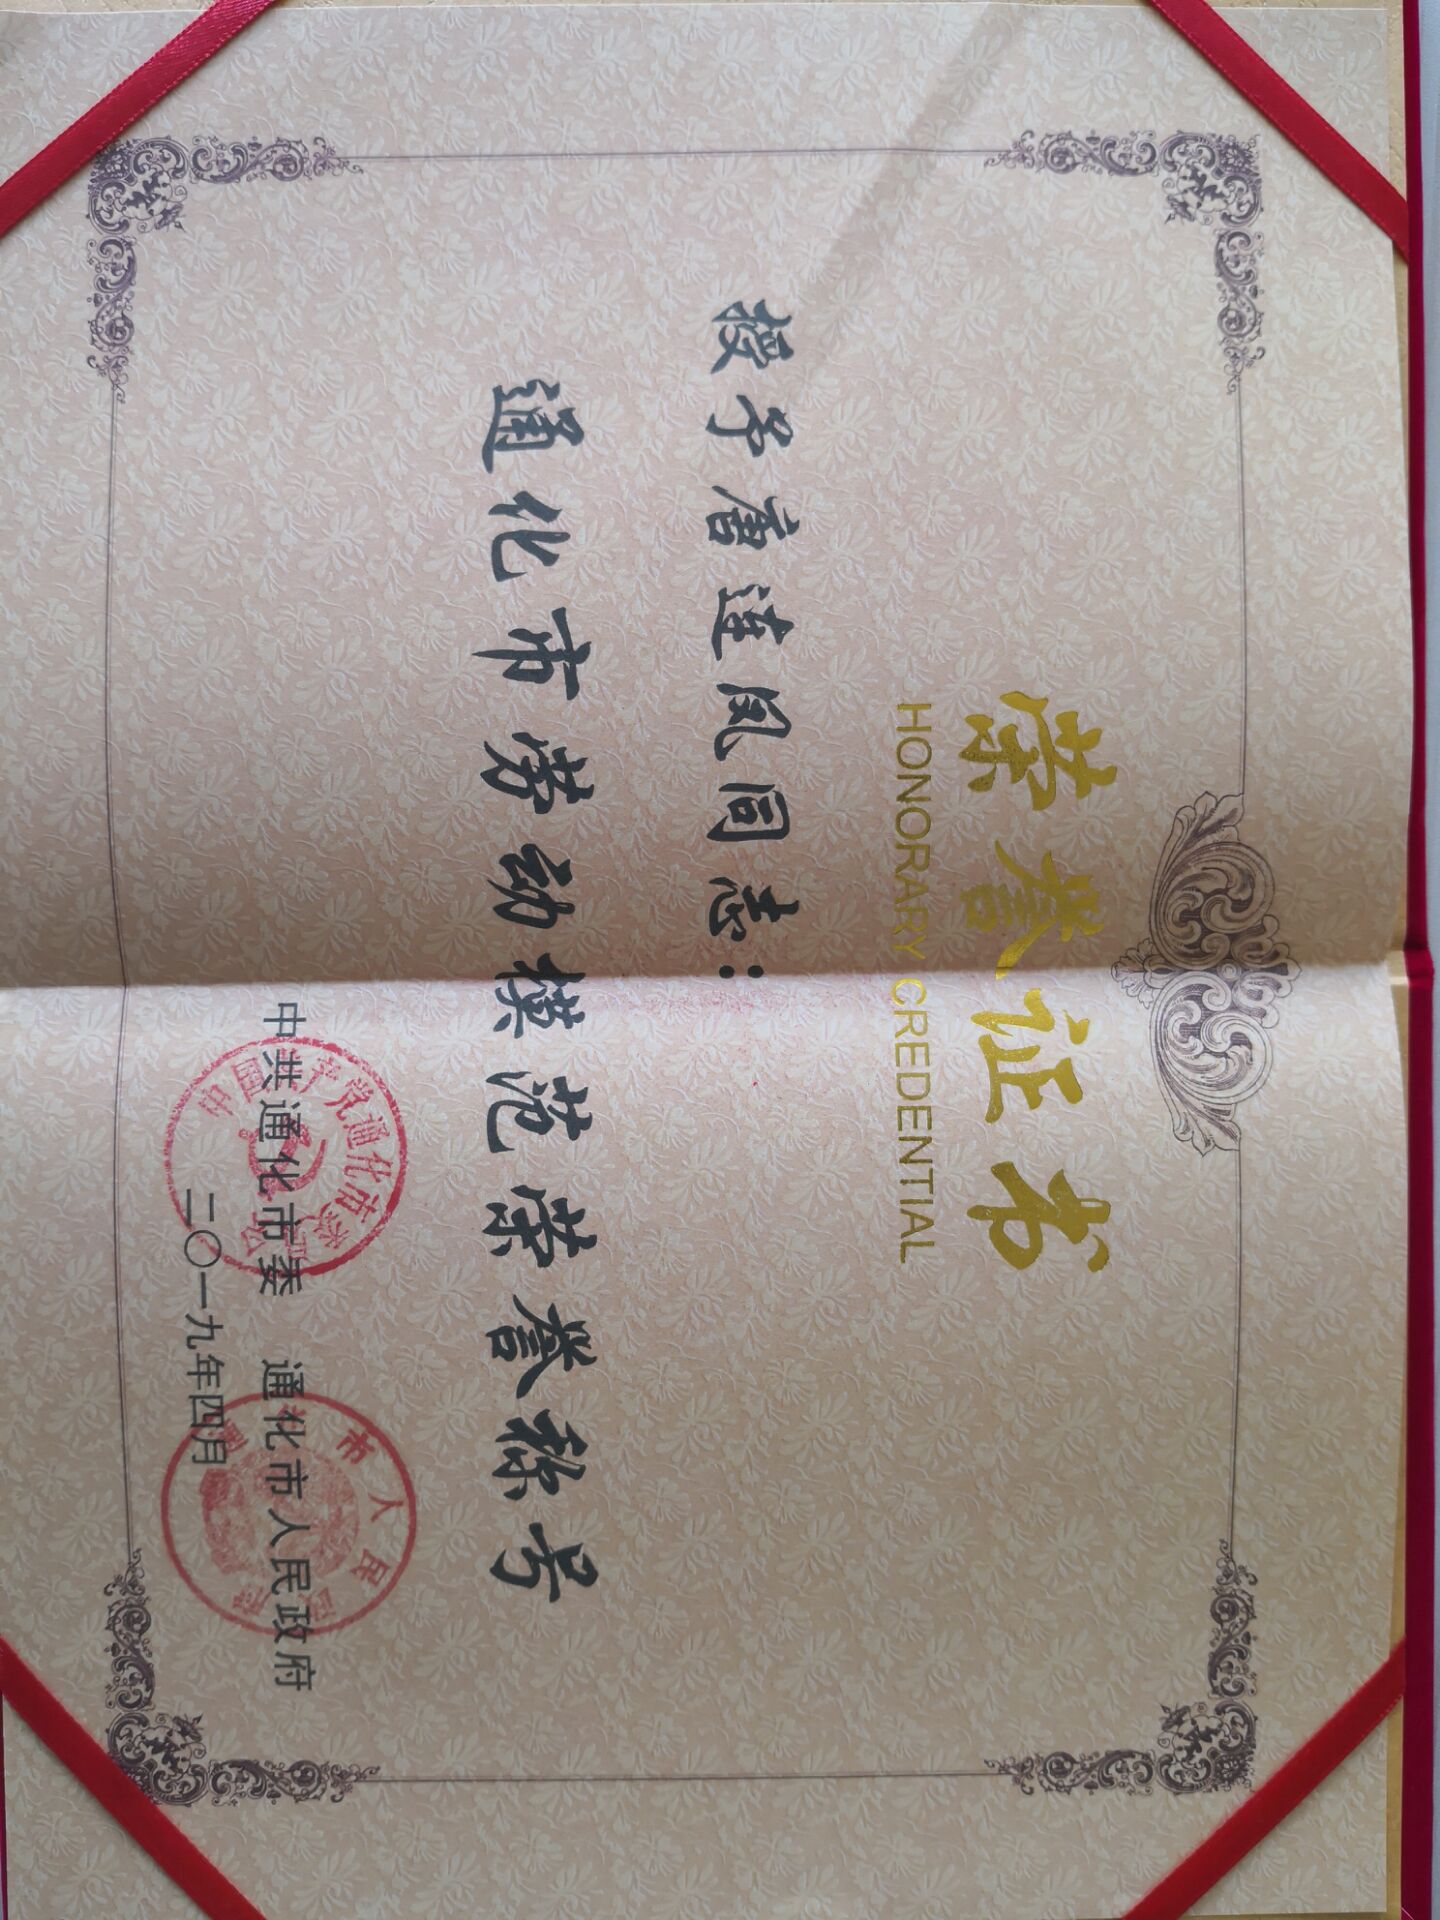 荣誉证书
HONORARY CREDENTIAL
授予唐莲凤同志:
通化市劳动模范荣誉称号
中共通化市委 通化市人民政府
二〇一九年四月
中国共产党通化市委员会
市人民